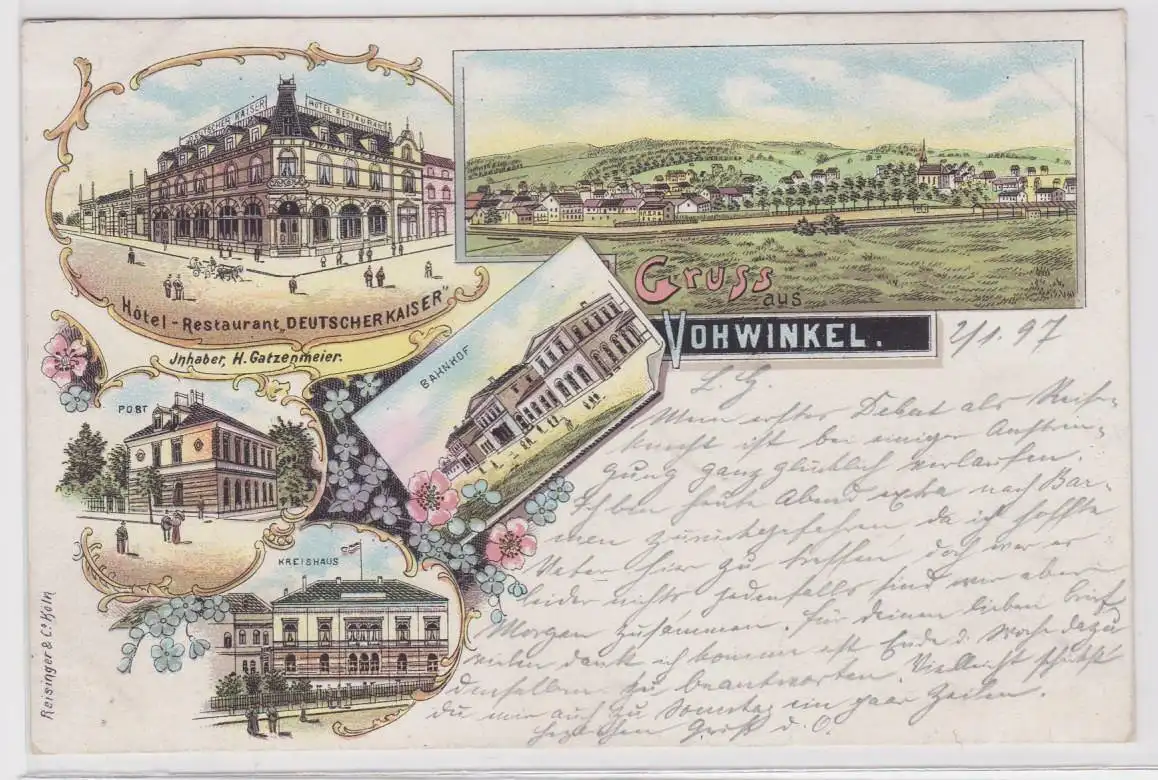 DEUTSCHER KAISER
HOTEL RESTAURANT
Hôtel-Restaurant „DEUTSCHER KAISER"
Jnhaber, H. Gatzenmeier.
POST
BAHNHOF
KREISHAUS
Reisinger & Co Köln
Gruss
aus
VOHWINKEL.
2/1. 97
L. G.
Mein erster Debut als Reise-
knecht ist bei einiger Anstren-
gung ganz glücklich verlaufen.
Ich bin heute Abend extra nach Bar-
men zurückgefahren, da ich hoffte
hier zu treffen, doch war er
leider nicht jedenfalls sind wir aber
Morgen zusammen. Für deinen lieben Brief
vielen dank ich komme erst Ende d. Woche dazu
denselben zu beantworten. Vielleicht schickst
du mir auch zu Sonntag ein paar Zeilen.
Herzlichen Gruß d. O.